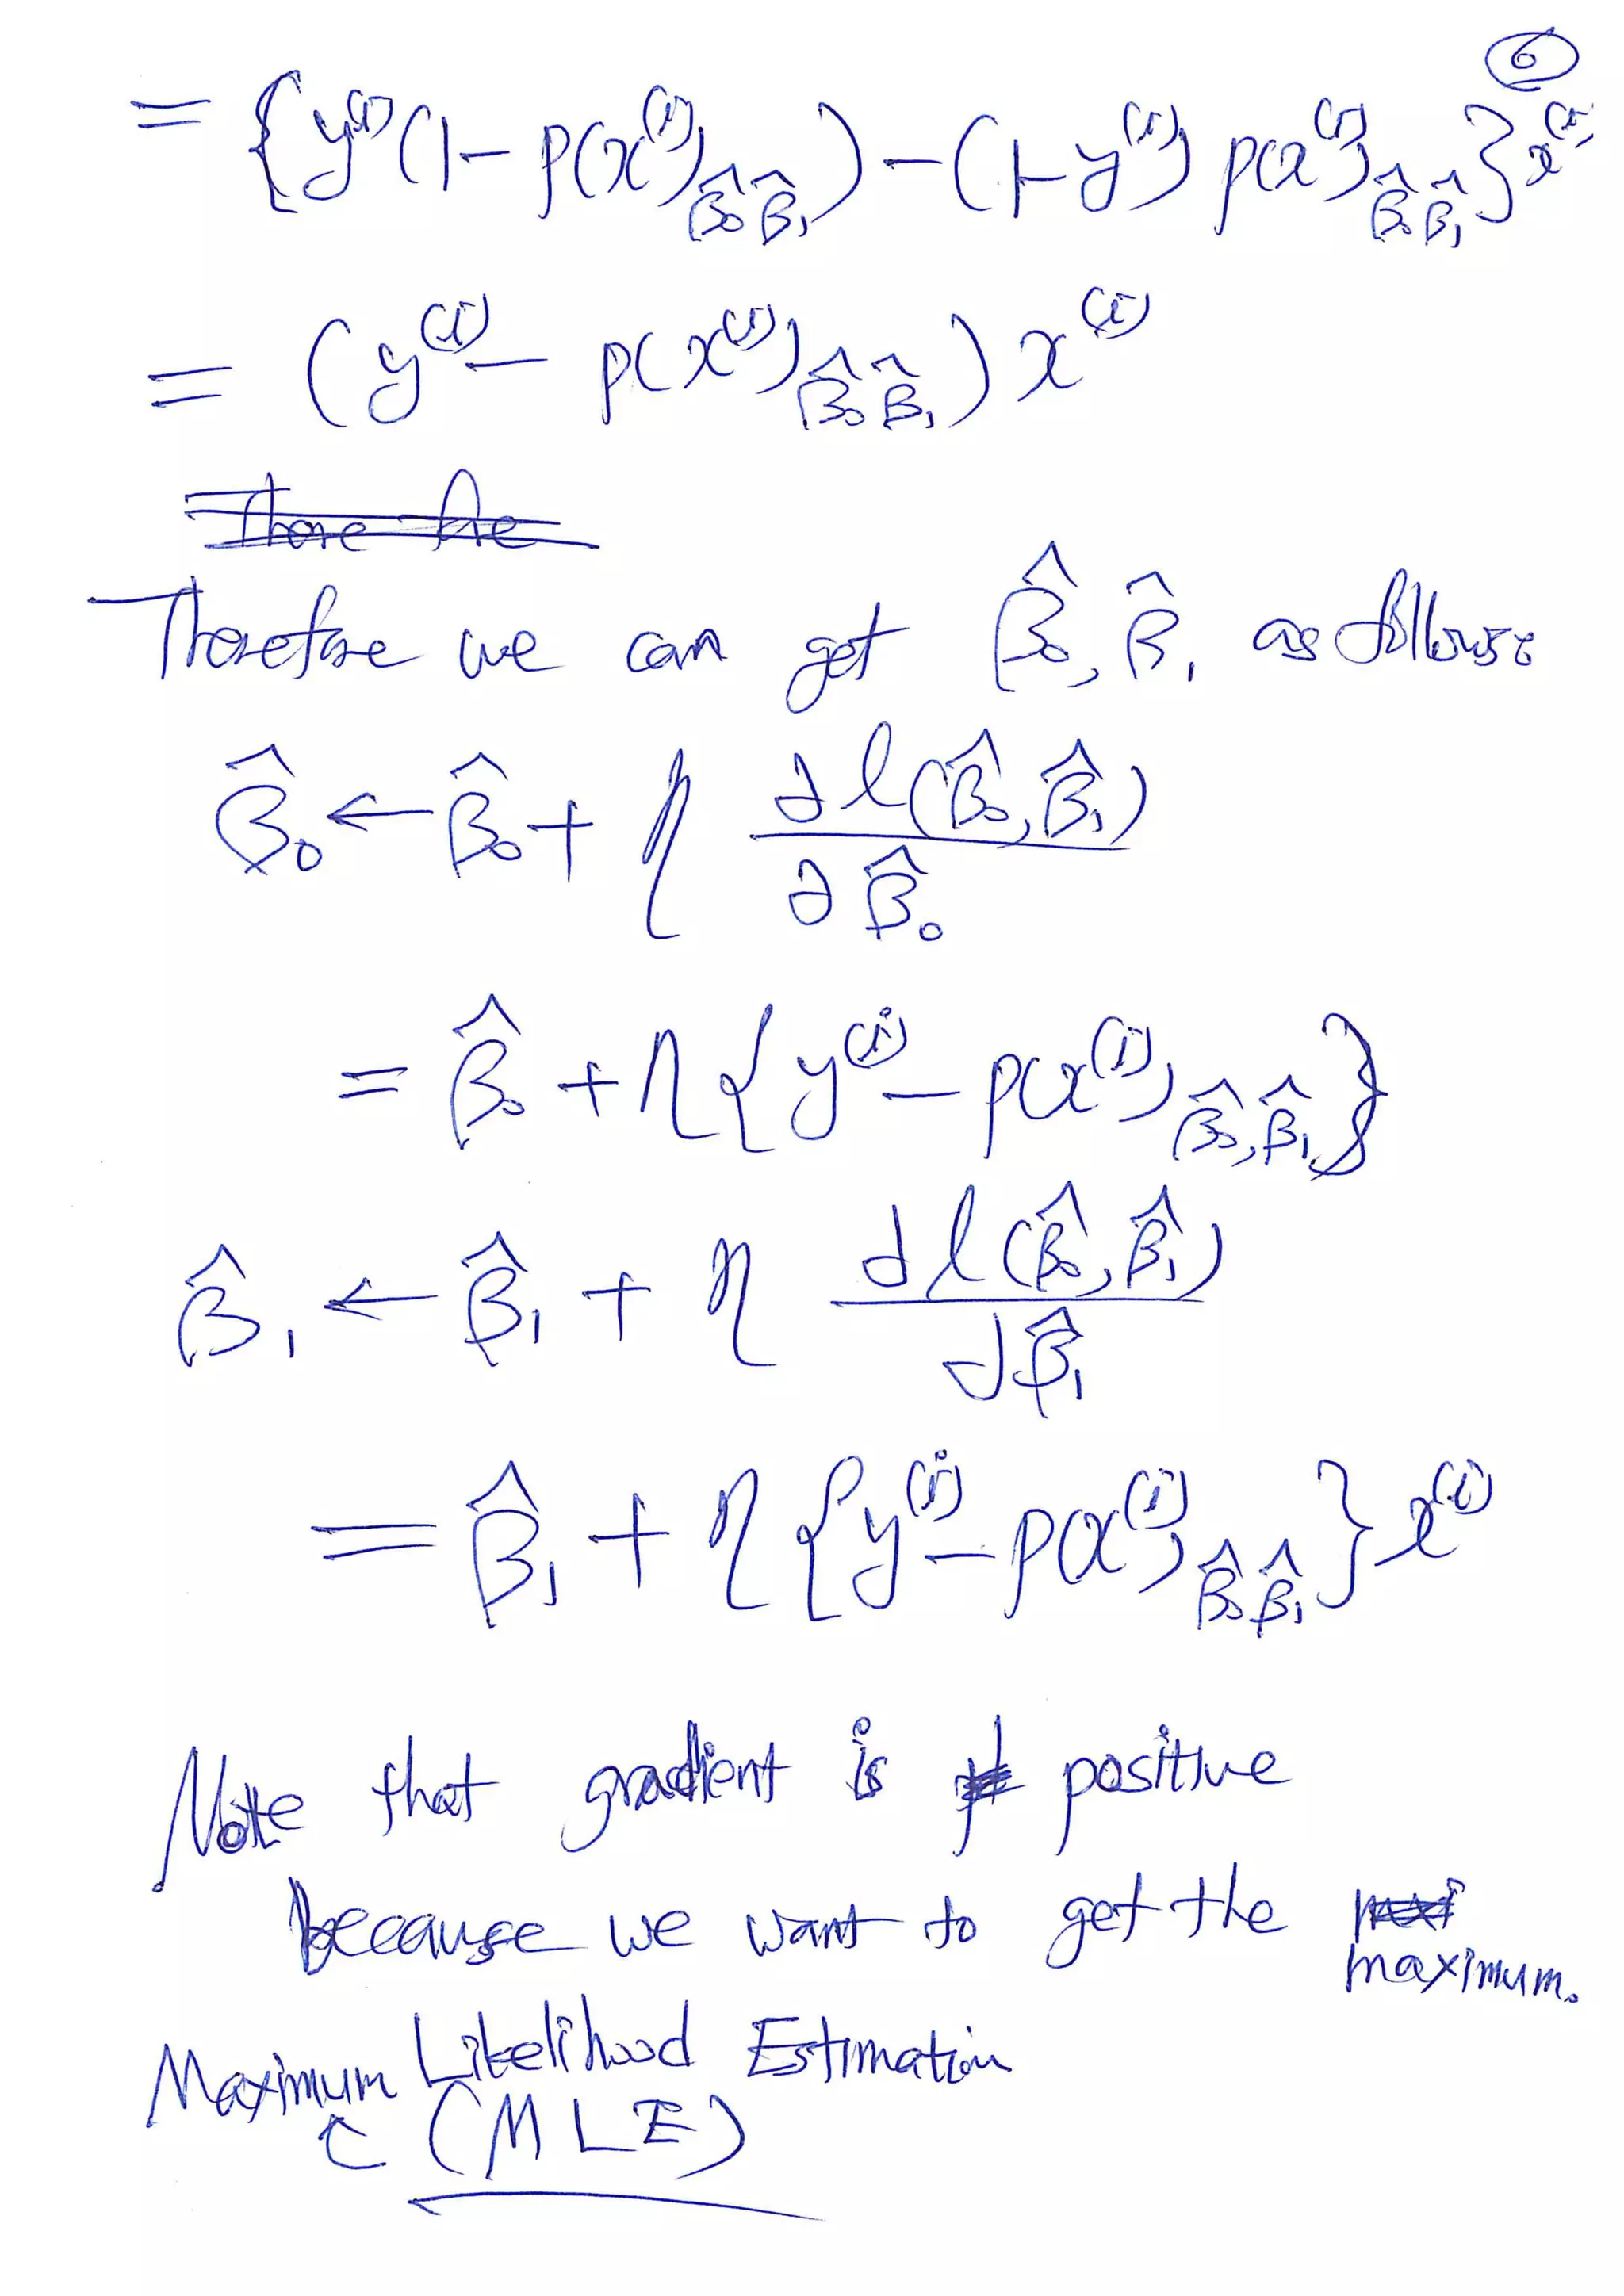 6
= {y^(i) (1 - p(x^(i))_β̂0 β̂1) - (1 - y^(i)) p(x^(i))_β̂0 β̂1} x^(i)
= (y^(i) - p(x^(i))_β̂0 β̂1) x^(i)
Therefore we can get β̂0, β̂1 as follows:
β̂0 ← β̂0 + η ∂l(β̂0, β̂1) / ∂β̂0
= β̂0 + η{y^(i) - p(x^(i))_β̂0, β̂1}
β̂1 ← β̂1 + η ∂l(β̂0, β̂1) / ∂β̂1
= β̂1 + η{y^(i) - p(x^(i))_β̂0 β̂1} x^(i)
Note that gradient is positive
because we want to get the
maximum.
Maximum Likelihood Estimation
(MLE)